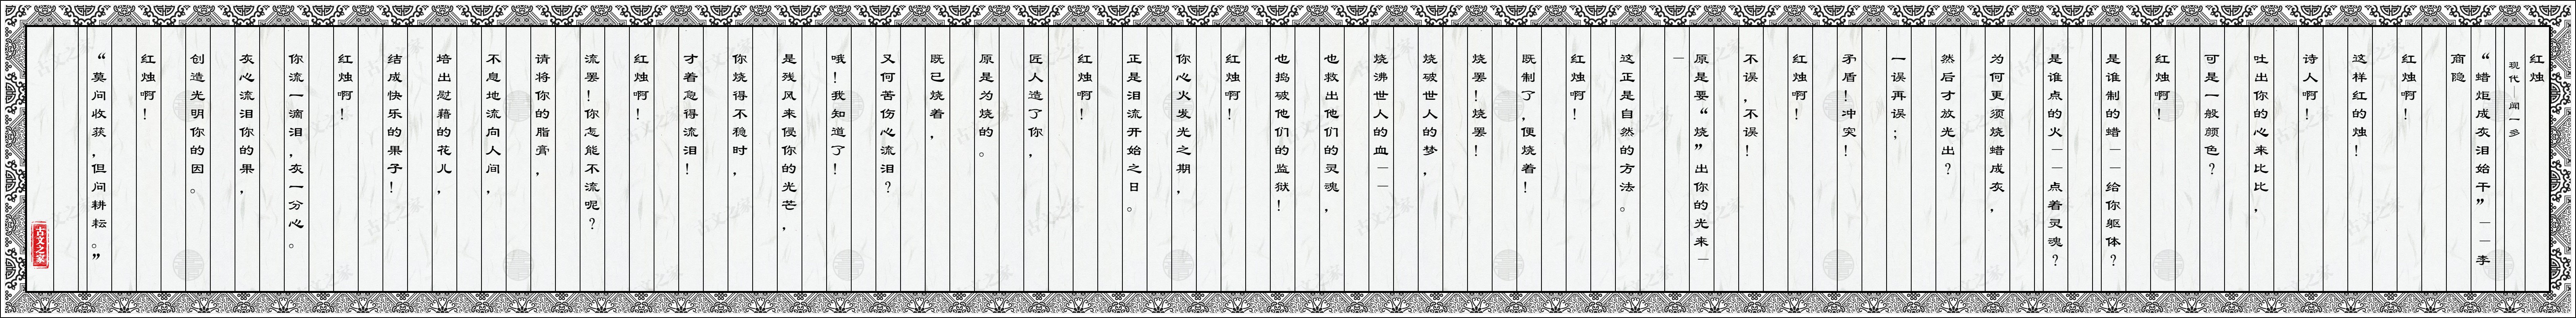 红烛
现代—闻一多
“蜡炬成灰泪始干”——李
商隐
红烛啊！
这样红的烛！
诗人啊！
吐出你的心来比比，
可是一般颜色？
红烛啊！
是谁制的蜡——给你躯体？
是谁点的火——点着灵魂？
为何更须烧蜡成灰，
然后才放光出？
一误再误；
矛盾！冲突！
红烛啊！
不误，不误！
原是要“烧”出你的光来—
—
这正是自然的方法。
红烛啊！
既制了，便烧着！
烧罢！烧罢！
烧破世人的梦，
烧沸世人的血——
也救出他们的灵魂，
也捣破他们的监狱！
红烛啊！
你心火发光之期，
正是泪流开始之日。
红烛啊！
匠人造了你，
原是为烧的。
既已烧着，
又何苦伤心流泪？
哦！我知道了！
是残风来侵你的光芒，
你烧得不稳时，
才着急得流泪！
红烛啊！
流罢！你怎能不流呢？
请将你的脂膏，
不息地流向人间，
培出慰藉的花儿，
结成快乐的果子！
红烛啊！
你流一滴泪，灰一分心。
灰心流泪你的果，
创造光明你的因。
红烛啊！
“莫问收获，但问耕耘。”
古文之家